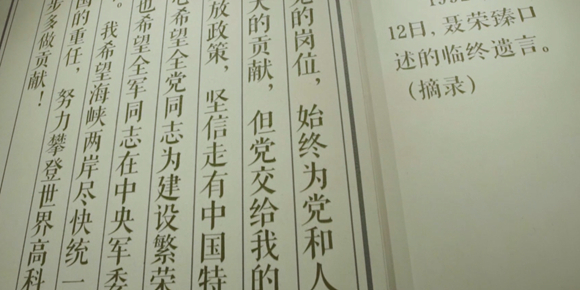 12日，聂荣臻口
述的临终遗言。
（摘录）
的岗位，始终为党和人
大的贡献，但党交给我的
放政策，坚信走有中国特
心希望全党同志为建设繁荣
也希望全军同志在中央军委
。我希望海峡两岸尽快统一
国的重任，努力攀登世界高科
步多做贡献！